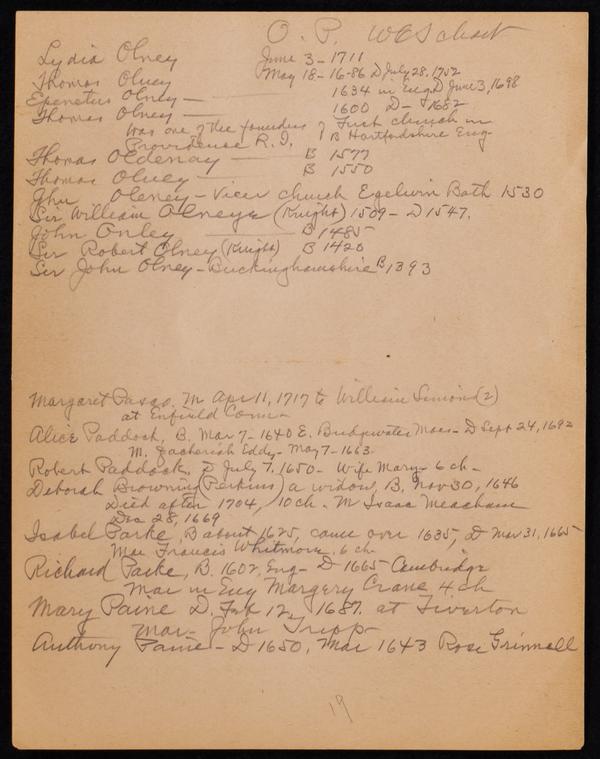 O. P. W C Schott
Lydia Olney June 3 - 1711
Thomas Olney May 18 - 16-86 D July 28, 1752
Epenetus Olney — 1634 in Eng. D June 3, 1698
Thomas Olney — 1600 D - 1682
Was one of the founders of First church in
Providence R. I. B Hartfordshire Eng-
Thomas Oldenay — B 1577
Thomas Olney — B 1550
John Oleney - Vicer church Egelwin Bath 1530
Sir William Olneye (Knight) 1509 - D 1547.
John Onley — B 1485
Sir Robert Olney (Knight) B 1420
Sir John Olney - Buckinghamshire B 1393
Margaret Pasco, M Apr 11, 1717 to William Simons (2)
at Enfield Conn-
Alice Paddock, B. Mar 7 - 1640 E. Bridgwater Mass - D Sept 24, 1692
M. Zacheriah Eddy - May 7 - 1663.
Robert Paddock, D July 7, 1650 - Wife Mary - 6 ch -
Deborah Browning (Perkins) a widow, B. Nov 30, 1646
Died after 1704, 10 ch. - M Isaac Meacham
Dec 28, 1669
Isabel Parke, B about 1625, came over 1635, D Mar 31, 1665
Mar Francis Whitmore. 6 ch
Richard Parke, B. 1602, Eng - D 1665 Cambridge
Mar in Eng Margery Crane 4 ch
Mary Paine D. Feb 12, 1687. at Tiverton
Mar - John Tripp
Anthony Paine - D 1650, Mar 1643 Rose Grinnell
19